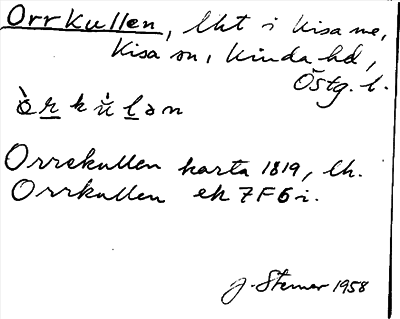 Orrkullen, lht i Kisa me,
Kisa sn, Kinda hd,
Östg. l.
òr̲kùl̲ən
Orrekullen karta 1819, lh.
Orrkullen ek 7F6i.
J. Sterner 1958